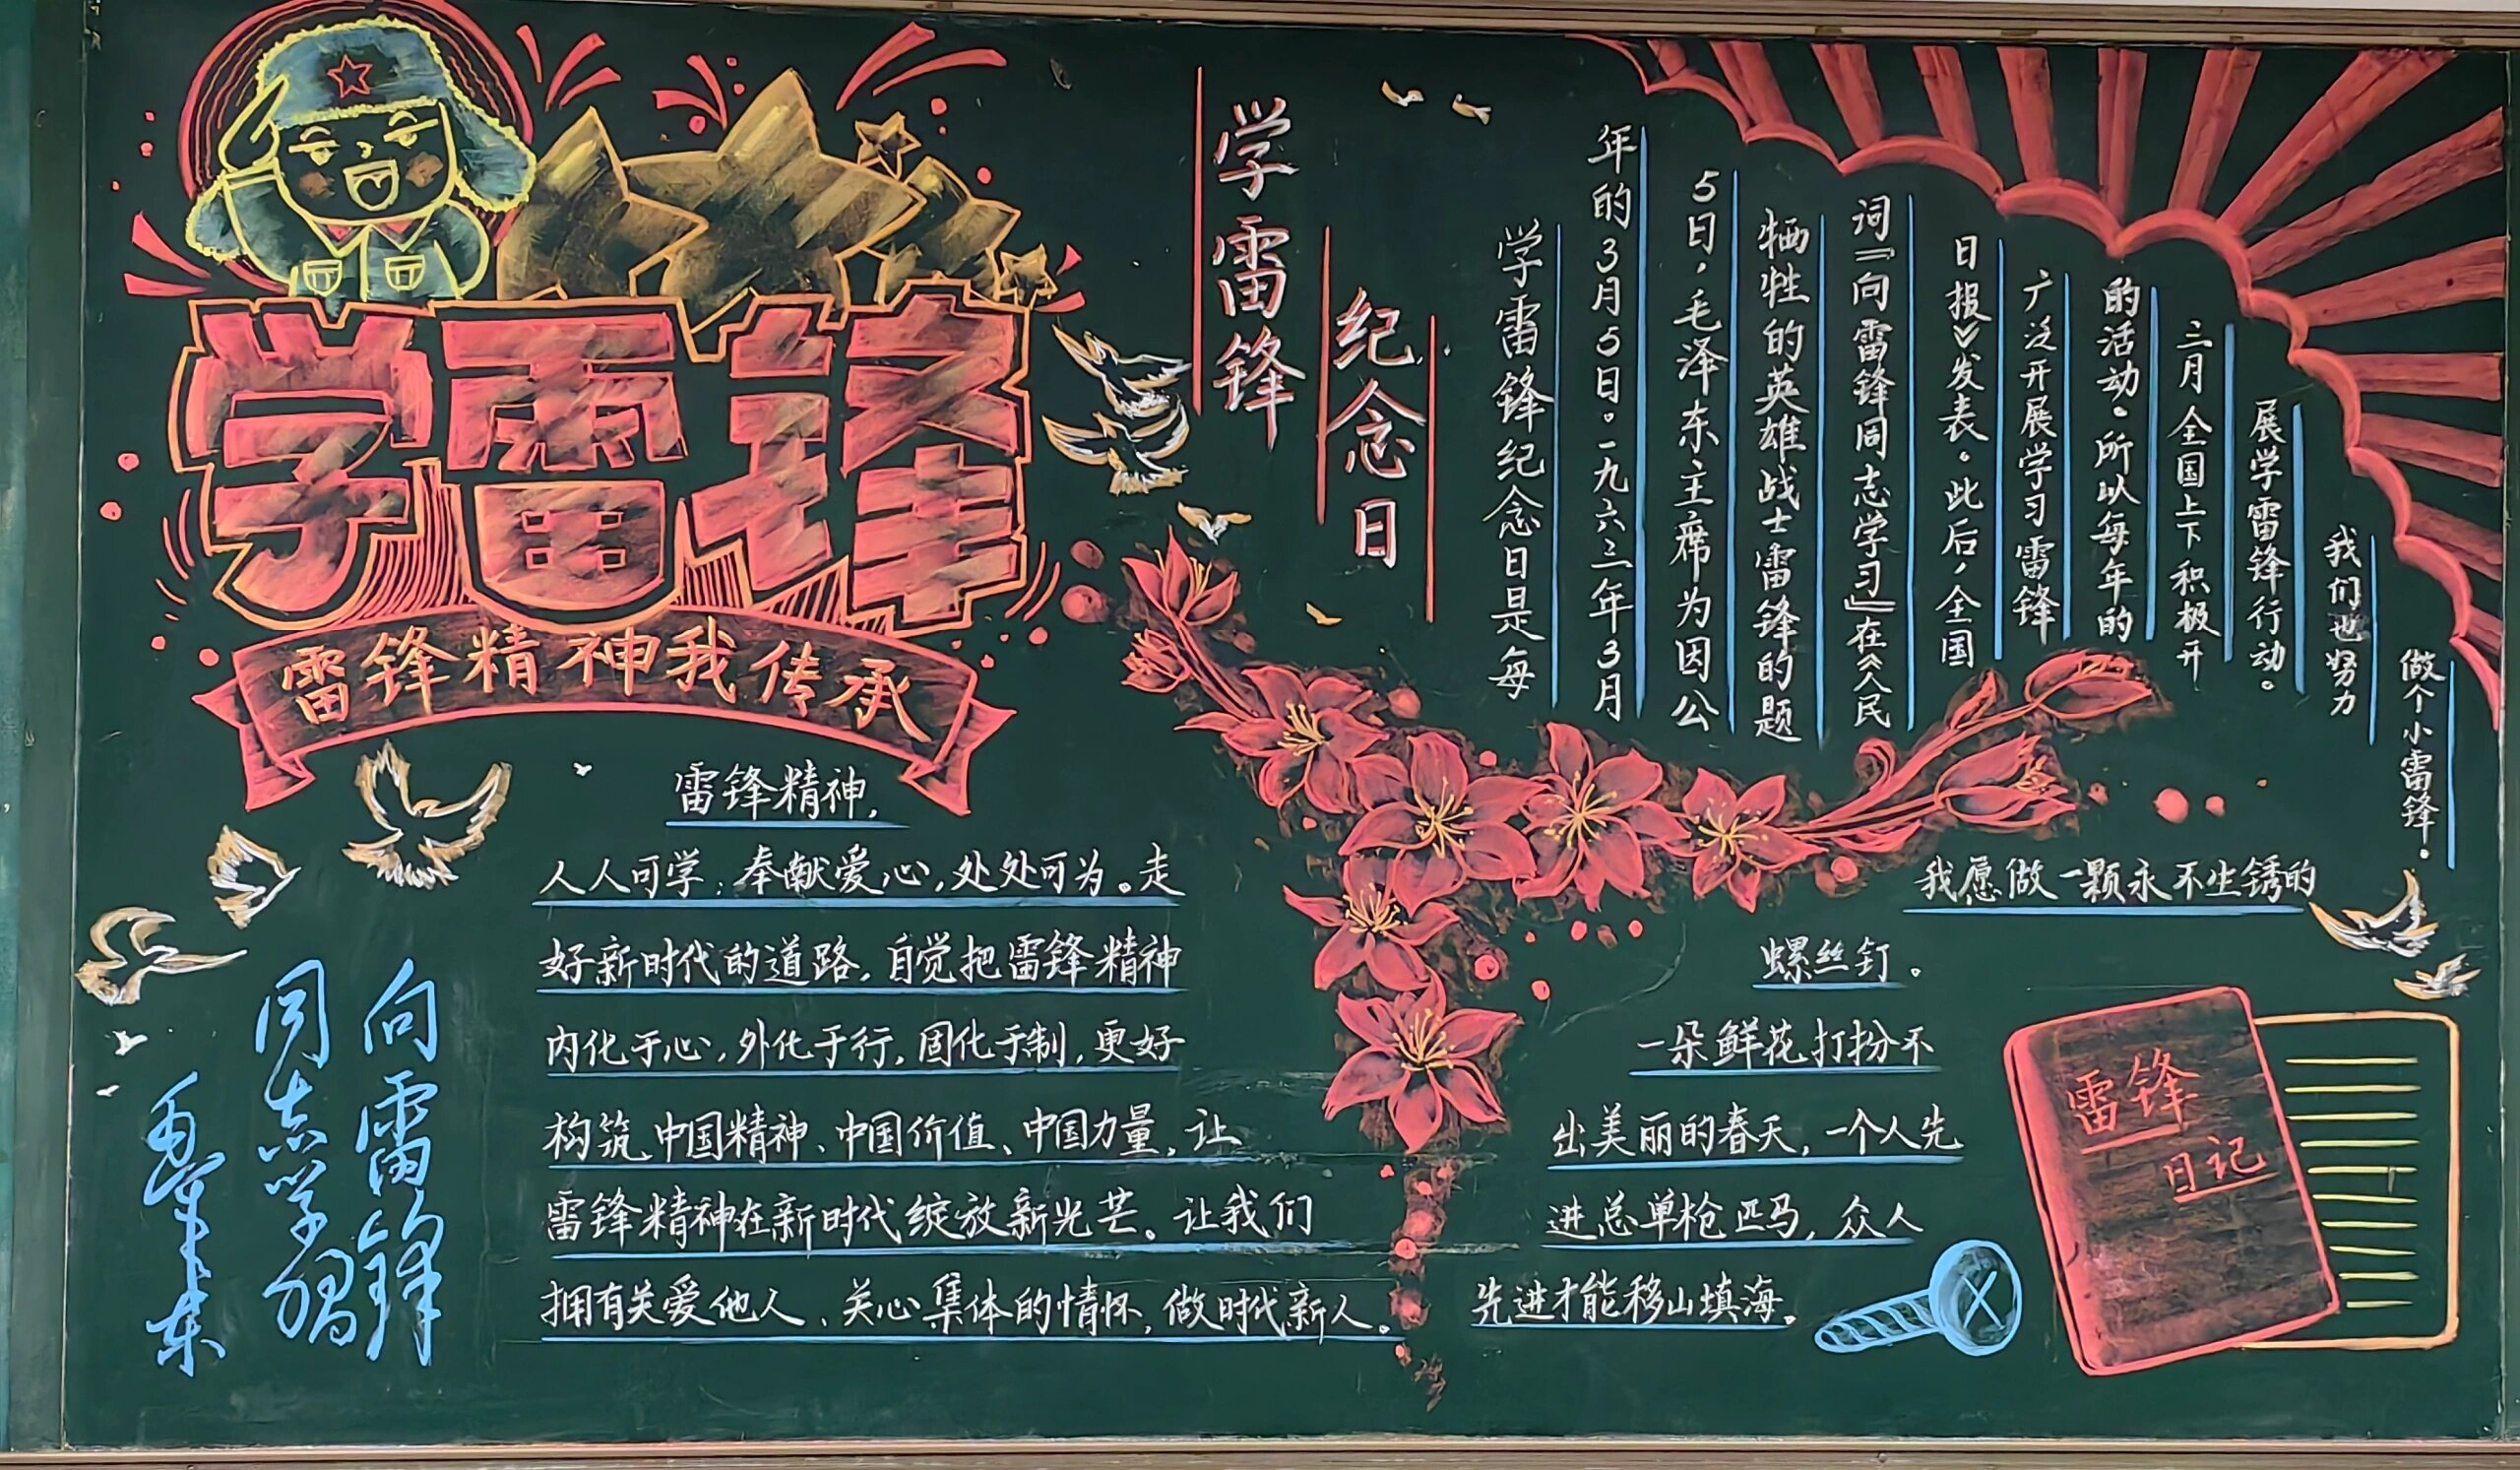 学雷锋
雷锋精神我传承
雷锋精神,
人人可学:奉献爱心,处处可为。走
好新时代的道路,自觉把雷锋精神
内化于心,外化于行,固化于制,更好
构筑中国精神、中国价值、中国力量,让
雷锋精神在新时代绽放新光芒。让我们
拥有关爱他人、关心集体的情怀,做时代新人。
向雷锋
同志学习
毛泽东
学雷锋
纪念日
学雷锋纪念日是每
年的3月5日。一九六三年3月
5日,毛泽东主席为因公
牺牲的英雄战士雷锋的题
词『向雷锋同志学习』在《人民
日报》发表。此后,全国
广泛开展学习雷锋
的活动。所以每年的
三月全国上下积极开
展学雷锋行动。
我们也努力
做个小雷锋.
我愿做一颗永不生锈的
螺丝钉。
一朵鲜花打扮不
出美丽的春天,一个人先
进总单枪匹马,众人
先进才能移山填海。
雷锋
日记